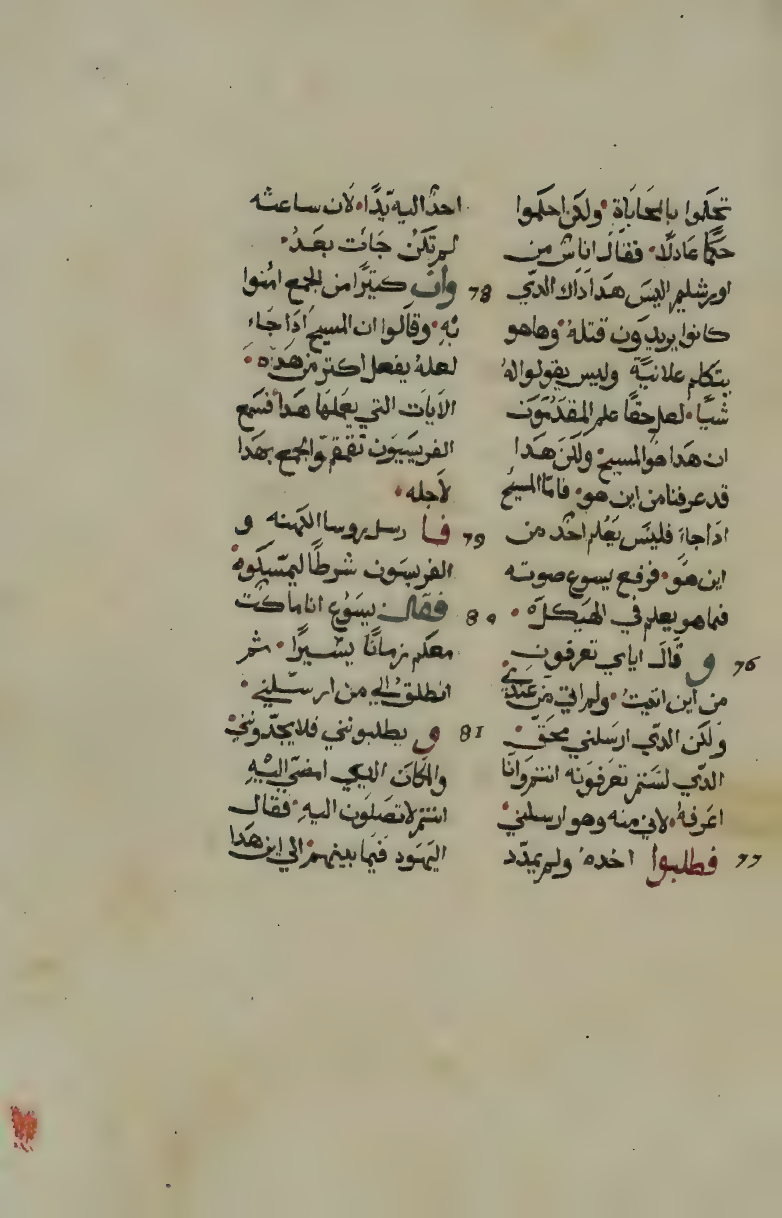 تحكموا بالمحاباة ولكن احكموا
حكمًا عادلًا فقال اناس من
اورشليم اليس هدا داك الدي
كانوا يريدون قتلهُ وهاهو
يتكلم علانيةً وليس يقولوا لهُ
شيًا لعل حقًا علم المقدمون
ان هدا هو المسيح ولكن هدا
قد عرفنا من اين هو فامّا المسيح
ادا جاءَ فليس يعلم احد من
اين هو فرفع يسوع صوته
فيما هو يعلم في الهيكل
76 و قال اياي تعرفون
من اين اتيتُ ولم اتي من عند
ولكن الدي ارسلني محق
الدي لستم تعرفونه انتم وانا
اعرفهُ لاني منه وهو ارسلني
77 فطلبوا اخده ولم يمدد
احدٌ اليه يدًا لان ساعته
لم تكن جات بعدُ
78 وان كتيرًا من الجمع امنوا
بهِ وقالوا ان المسيح ادا جاء
لعلهُ يفعل اكتر من هده
الايات التي يعملها هدا فسمع
الفريسيون تقمقم الجمع بهدا
لاجله
79 فا رسل روسا الكهنه و
الفريسون شرطًا ليمسكوه
80 فقال يسوع انا ماكت
معكم زمانًا يسيرًا ثم
انطلق الي من ارسلني
81 و يطلبونني فلا يجدونني
والمكان الدي امضي اليهِ
انتم لا تصلون اليهِ فقال
اليهود فيما بينهم الي اين هدا